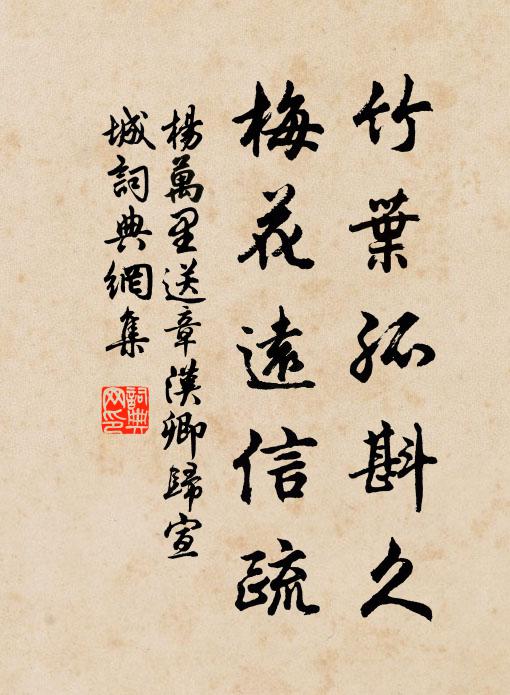 竹葉孤斟久
梅花遠信疏
楊萬里送章漢卿歸宣
城詞典網集
詞典网印